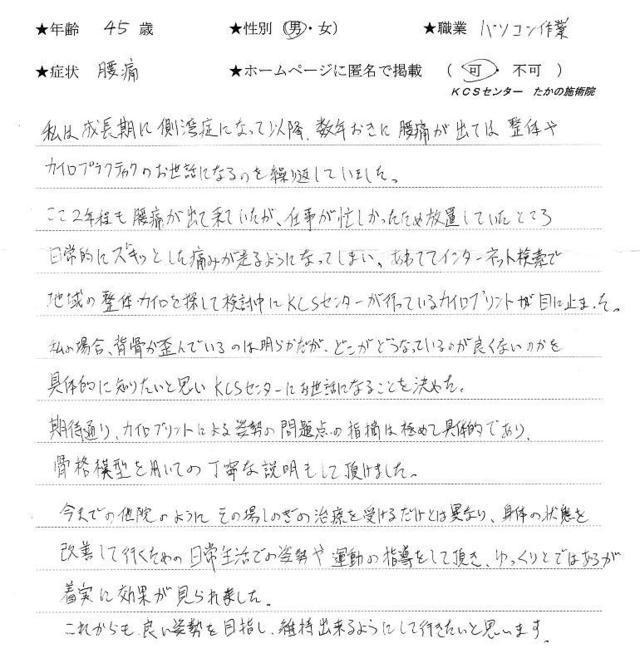 ★年齢 45 歳 ★性別(男・女) ★職業 パソコン作業
★症状 腰痛 ★ホームページに匿名で掲載 (可・不可)
KCSセンター たかの施術院
私は成長期に側湾症になって以降、数年おきに腰痛が出ては整体や
カイロプラクティックのお世話になるのを繰り返していました。
ここ2年程も腰痛が出て来ていたが、仕事が忙しかったため放置していたところ
日常的にズキッとした痛みが走るようになってしまい、あわててインターネット検索で
地域の整体・カイロを探して検討中にKCSセンターが行っているカイロプリントが目に止まった。
私の場合、背骨が歪んでいるのは明らかだが、どこがどうなっているのが良くないのかを
具体的に知りたいと思いKCSセンターにお世話になることを決めた。
期待通り、カイロプリントによる姿勢の問題点の指摘は極めて具体的であり、
骨格模型を用いての丁寧な説明もして頂けました。
今までの他院のようにその場しのぎの治療を受けるだけとは異なり、身体の状態を
改善して行くための日常生活での姿勢や運動の指導をして頂き、ゆっくりとではあるが
着実に効果が見られました。
これからも良い姿勢を目指し、維持出来るようにして行きたいと思います。